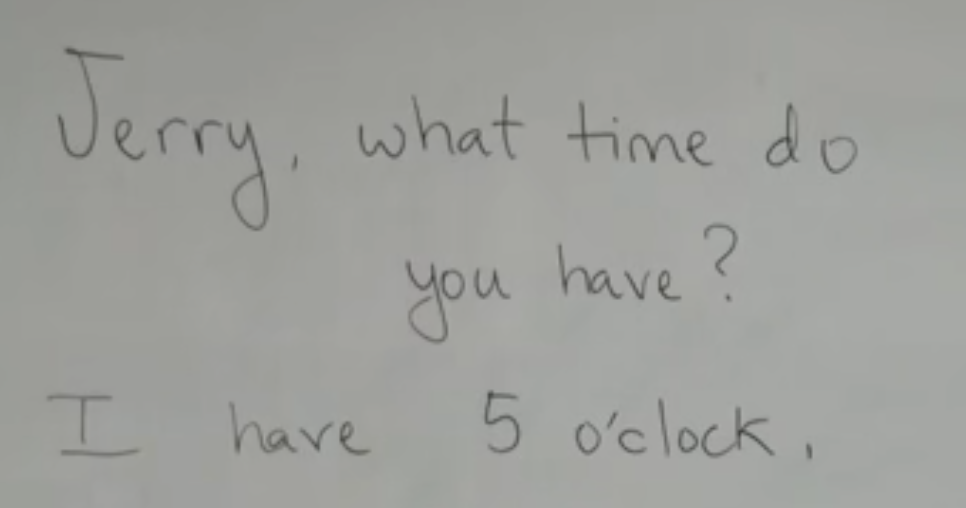 Jerry, what time do
you have?
I have 5 o'clock.